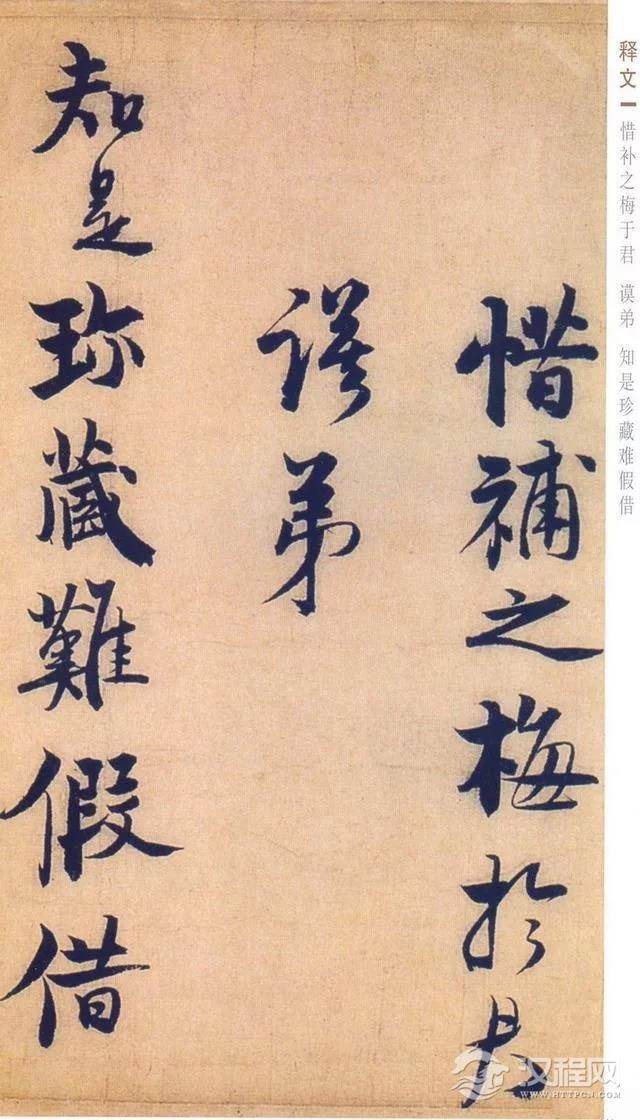 释文 惜补之梅于君 谟弟 知是珍藏难假借
惜補之梅於君
謨弟
知是珍藏難假借
汉程网
WWW.HTTPCN.COM